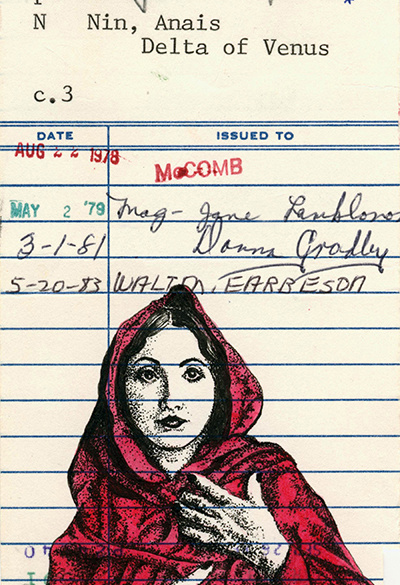 N Nin, Anais
Delta of Venus
c.3
DATE ISSUED TO
AUG 22 1978 McCOMB
MAY 2 '79 Mag- Jane
3-1-81 Donna Gradley
5-20-83 WALTON, EARRESON